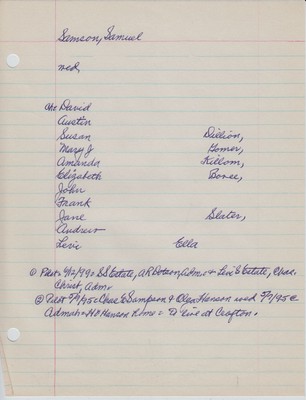 Samson, Samuel
wed,
ch: David
Austin
Susan Dillion,
Mary J Gomer,
Amanda Killom,
Elizabeth Boree,
John
Frank
Jane Slater,
Andrew
Levi Ella
Estate, A R Dotson, Adm. & Levi E Estate, Chas.
Christ, Adm.
Chas E Sampson & Olga Hanson wed 5/7/95
Hanson live at Crofton.